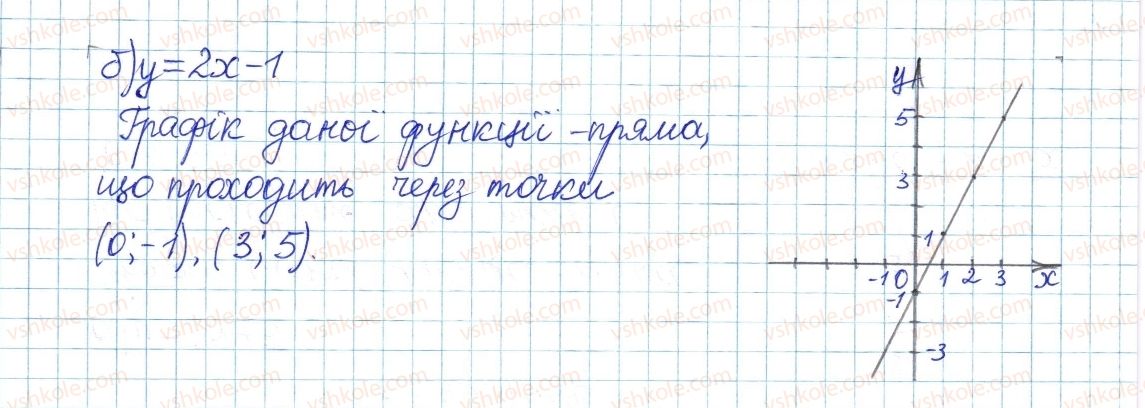 б) y=2x-1
Графік даної функції - пряма,
що проходить через точки
(0;-1), (3; 5).
y
5
3
1
-1 0 1 2 3 x
-1
-3
vshkole.com